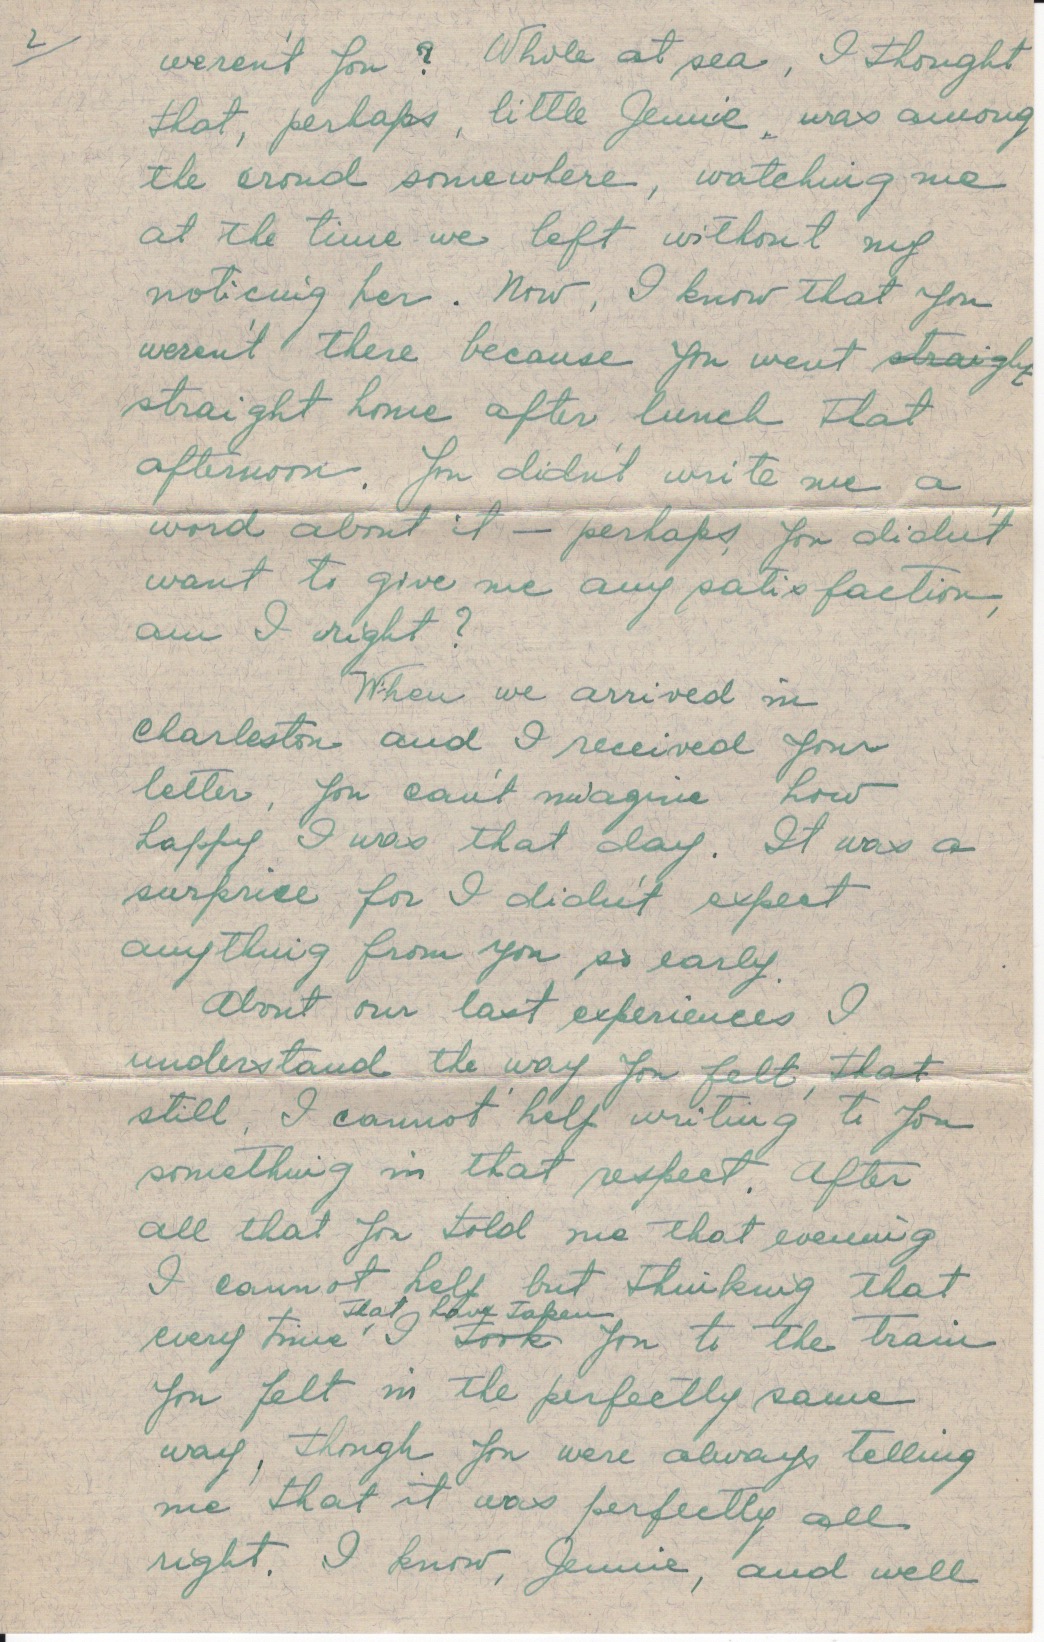 2/
weren't you? Whole at sea, I thought
that, perhaps, little Jennie was among
the croud somewhere, watching me
at the time we left without my
noticing her. Now, I know that you
weren't there because you went straight
straight home after lunch that
afternoon. You didn't write me a
word about it — perhaps, you didn't
want to give me any satisfaction,
am I right?
When we arrived in
Charleston and I received your
letter, you can't imagine how
happy I was that day. It was a
surprise for I didn't expect
anything from you so early.
About our last experiences I
understand the way you felt, that
still, I cannot help writing to you
something in that respect. After
all that you told me that evening
I cannot help but thinking that
that have taken
every time I took you to the train
you felt in the perfectly same
way, though you were always telling
me that it was perfectly all
right. I know, Jennie, and well